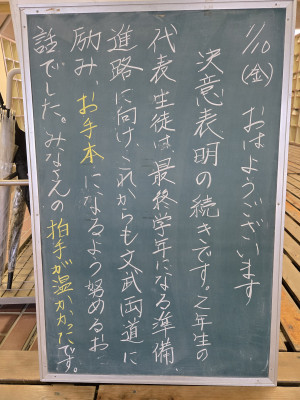 1/10(金) おはようございます
決意表明の続きです。2年生の
代表生徒は、最終学年になる準備、
進路に向け、これからも文武両道に
励み、お手本になるよう努めるお
話でした。みなさんの拍手が温かかったです。